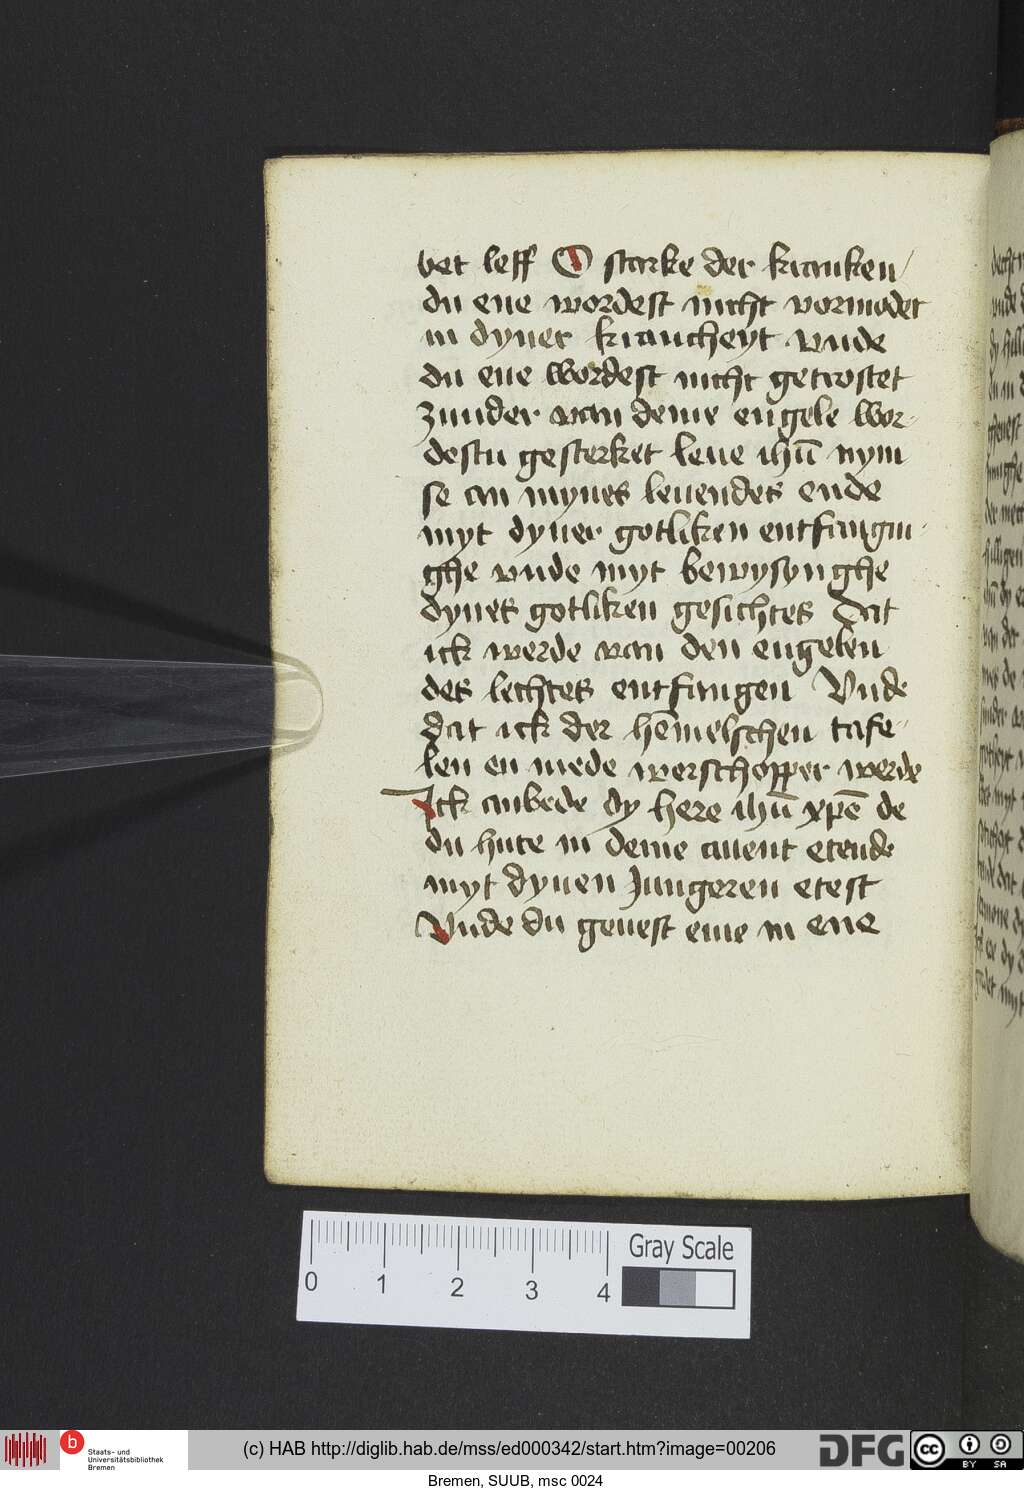 bet leff O starke der kranken
du ene wordest nicht vormodet
in dyner krancheyt vnde
du ene wordest nicht getrostet
zunder van deme engele wor-
destu gesterket leue ihū nym
se an mynes leuendes ende
myt dyner gotliken entfangin-
ghe vnde myt bewysynghe
dynes gotliken gesichtes Dat
ick werde van den engelen
des lechtes entfangen Vnde
dat ick der hēmelschen tafe-
len en mede werschopper werde
Ick anbede dy here ihū xp̄e de
du hute in deme auent etende
myt dynen Jungeren etest
Vnde du geuest eme in ene
0 1 2 3 4
Gray Scale
b
Staats- und
Universitätsbibliothek
Bremen
(c) HAB http://diglib.hab.de/mss/ed000342/start.htm?image=00206
DFG
cc BY SA
Bremen, SUUB, msc 0024